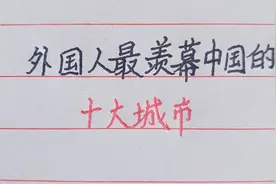 外国人最羡慕中国的
十大城市